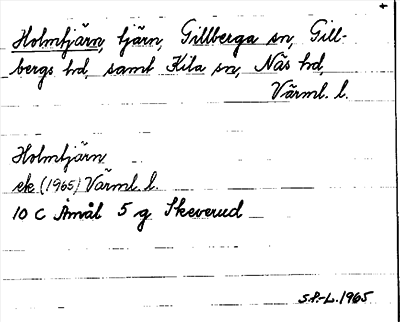 Holmtjärn, tjärn, Gillberga sn, Gill-
bergs hd, samt Kila sn, Näs hd,
Värml. l.
Holmtjärn
ek. (1965) Värml. l.
10 C Åmål 5 g Skeverud
S.P.-L. 1965